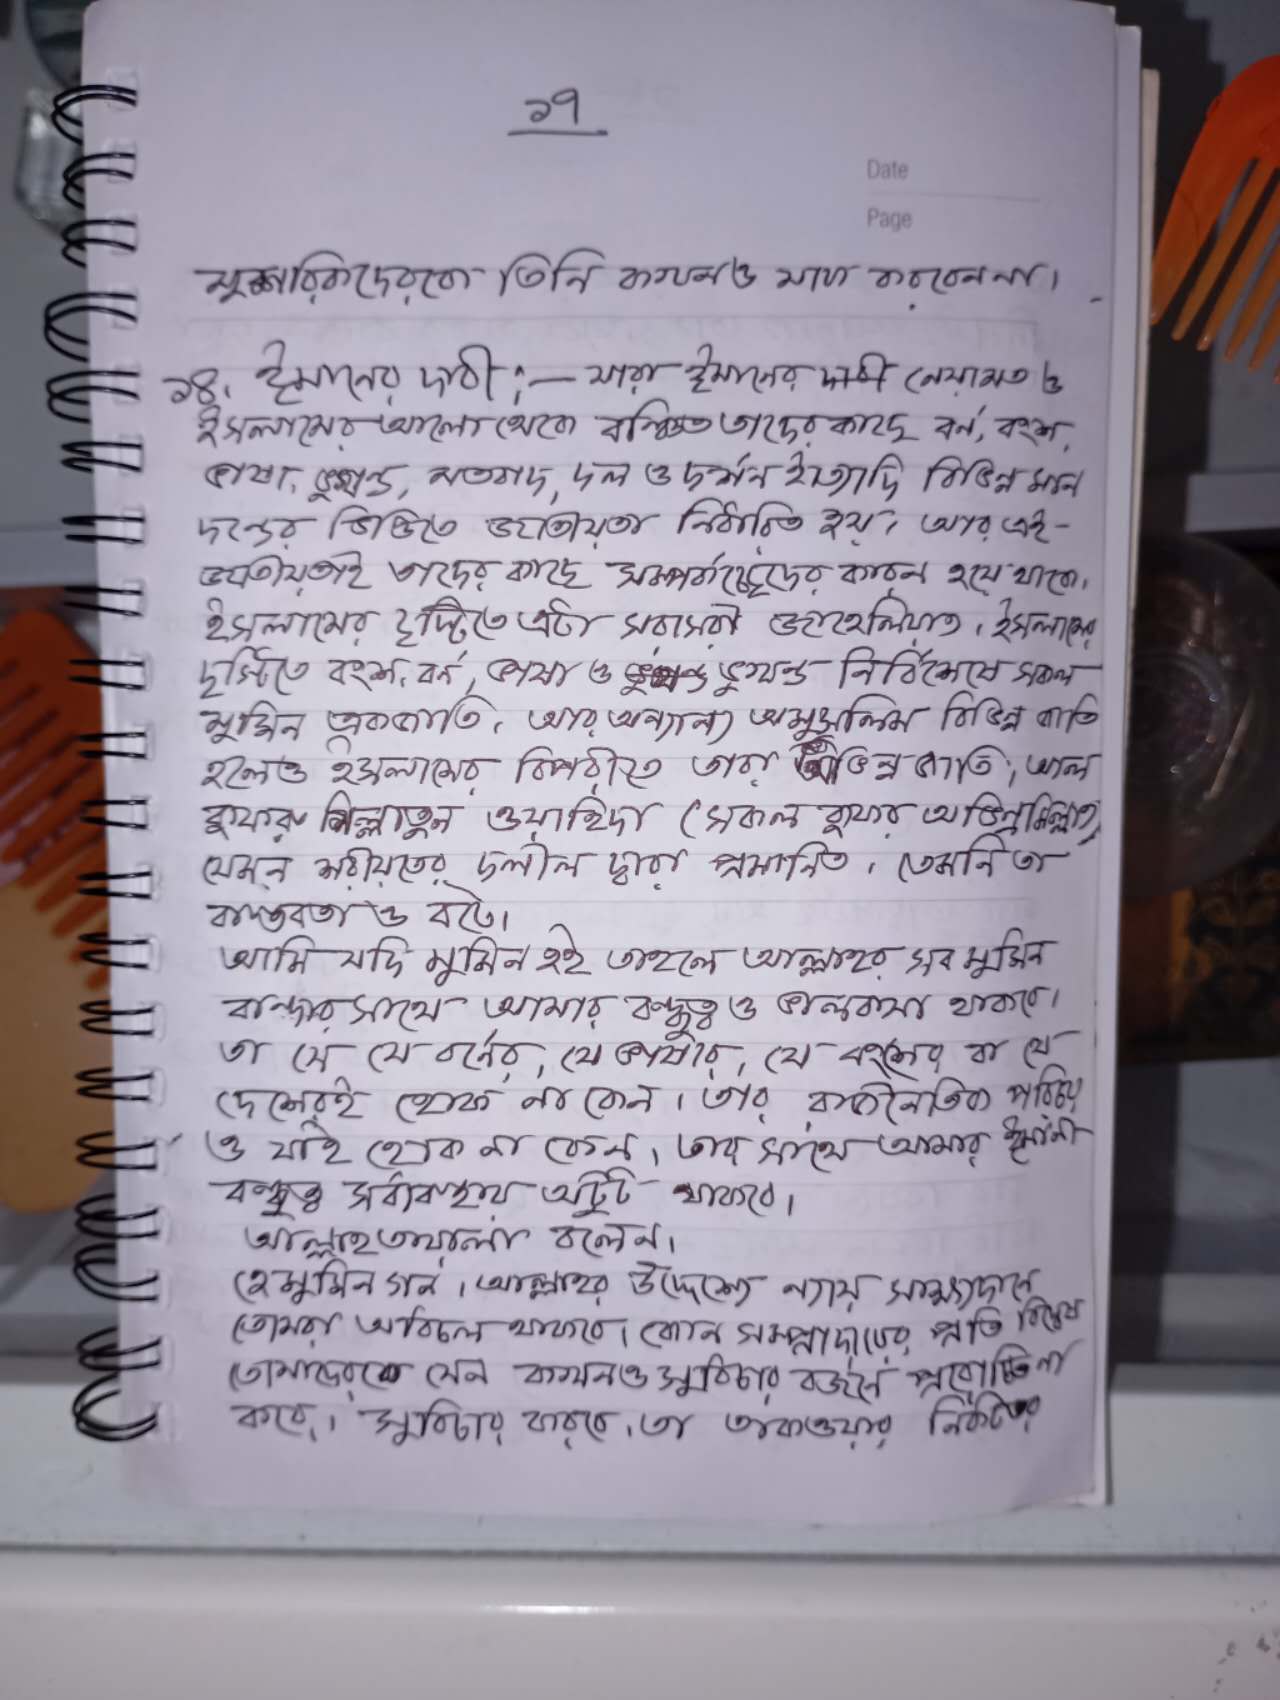 ১৭
Date
Page
মুশরিকদেরকে তিনি কখনও মাফ করবেন না।
১৪. ইমানের দাবী :— যারা ইমানের দাবী নেয়ামত ও
ইসলামের আলো থেকে বঞ্চিত তাদের কাছে বর্ন, বংশ,
ভাষা, ভুখন্ড, মতবাদ, দল ও দর্শন ইত্যাদি বিভিন্ন মান
দন্ডের ভিত্তিতে জাতীয়তা নির্ধারিত হয়। আর এই-
জাতীয়তাই তাদের কাছে সম্পর্কচ্ছেদের কারন হয়ে থাকে।
ইসলামের দৃষ্টিতে এটা সরাসরী জাহেলিয়াত। ইসলামের
দৃষ্টিতে বংশ, বর্ন, ভাষা ও ভুখন্ড নির্বিশেষে সকল
মুমিন একজাতি। আর অন্যান্য অমুসলিম বিভিন্ন জাতি
হলেও ইসলামের বিপরীতে তারা অভিন্ন জাতি, আল
কুফরু মিল্লাতুন ওয়াহিদা (সকল কুফর অভিন্ন মিল্লাত)
যেমন শরীয়তের দলীল দ্বারা প্রমানিত। তেমনি তা
বাস্তবতা ও বটে।
আমি যদি মুমিন হই তাহলে আল্লাহর সব মুমিন
বান্দার সাথে আমার বন্ধুত্ব ও ভালবাসা থাকবে।
তা সে যে বর্নের, যে ভাষার, যে বংশের বা যে
দেশেরই হোক না কেন। তার রাজনৈতিক পরিচয়
ও যাই হোক না কেন, তার সাথে আমার ইমানী
বন্ধুত্ব সর্বাবস্থায় অটুট থাকবে।
আল্লাহ তায়ালা বলেন।
হে মুমিন গন। আল্লাহর উদ্দেশ্যে ন্যায় সাক্ষ্যদানে
তোমরা অবিচল থাকবে। কোন সম্প্রাদায়ের প্রতি বিদ্বেষ
তোমাদেরকে যেন কখনও সুবিচার বর্জনে প্ররোচিত না
করে। সুবিচার করবে, তা তাকওয়ার নিকটতর